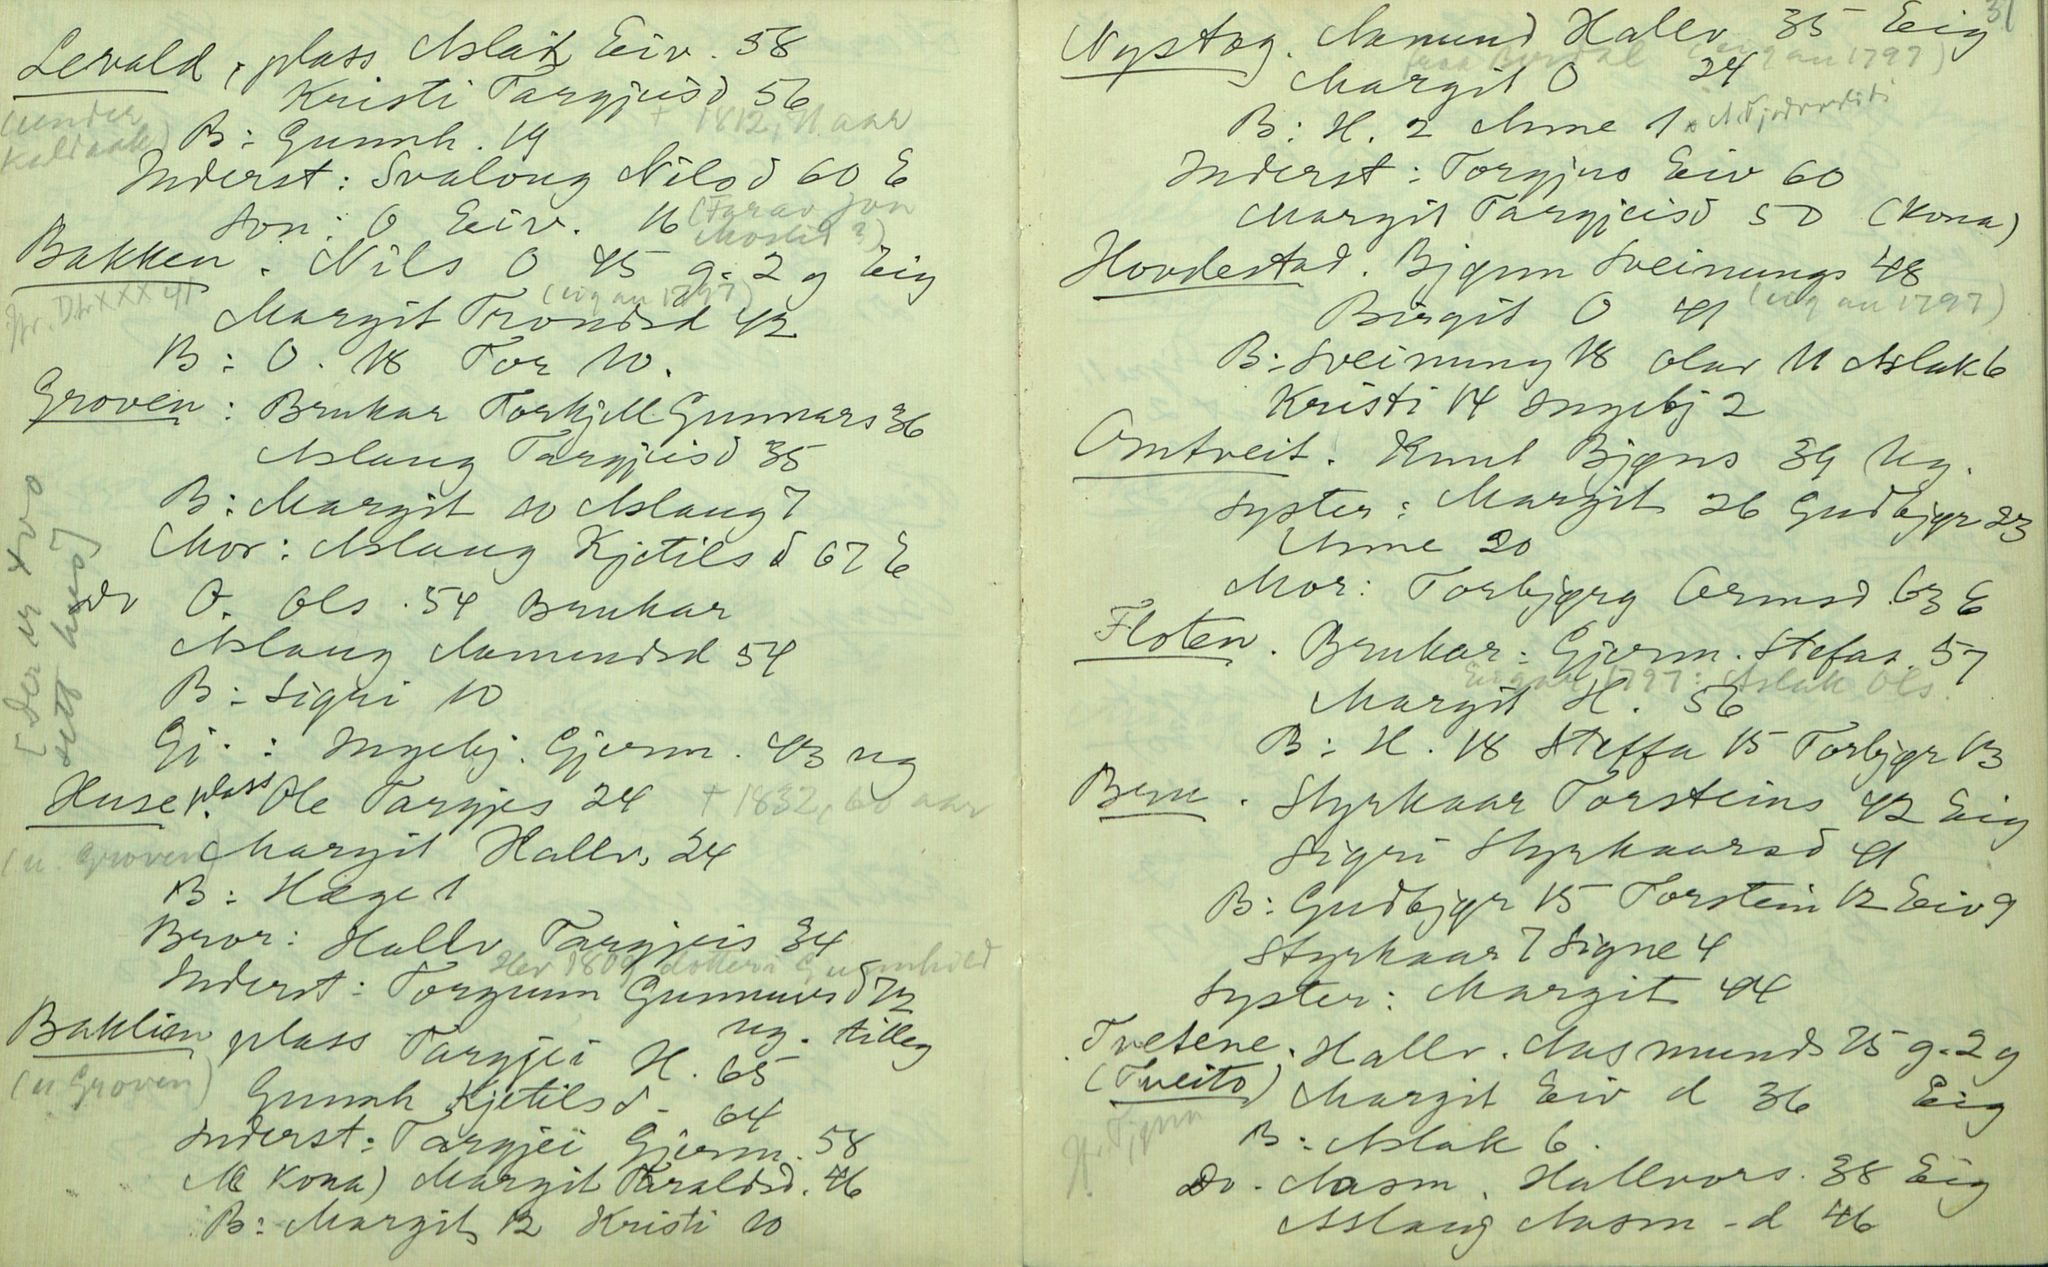 Levald, plass Aslak Eiv. 58
Kristi Targjeisd 56
(under Kaldaak)
+ 1812, 71 aar
B: Gunnh. 19
Inderst: Svaloug Nilsd 60 E
Son: O Eiv. 16 (Farar Jon
Bakken. Nils O 45 g. 2 g Eig
(eig au 1797)
Margit Trondsd 42
B: O. 18 Tor 10.
Groven: Brukar Torkjell Gunnars 36
Aslaug Targjeisd 35
B: Margit 10 Aslaug 7
Mor: Aslaug Kjetilsd 67 E
[der er tvo sett hus]
do O. Ols. 54 Brukar
Aslaug Aamundsd 54
B: Sigri 10
Gj.: Ingebj. Gjerm. 43 ug
Huse plass Ole Targjes 24 + 1832, 60 aar
(u Groven) Margit Hallv. 24
B: Hæge 1
Bror: Hallv Targjeis 34
Hev 1809 dotteri Gunnhild
Inderst: Torgunn Gunnarsd 72
ug. tilleg
Baklien plass Targjei H. 65
(u Groven) Gunnh Kjetilsd. 64
Inderst: Targjei Gjerm. 58
Kona) Margit Taraldsd. 46
B: Margit 12 Kristi 10
31
Nystog. Aamund Hallv 35 Eig
(eig au 1797)
Margit O 24
B: H. 2 Anne 1
Inderst: Torgjus Eiv 60
Margit Targjeisd 50 (Kona)
Hovdestad. Bjørn Sveinungs 48
Birgit O 41 (eig au 1797)
B: Sveinung 18 Olav 11 Aslak 6
Kristi 14 Ingebj 2
Omtveit. Knut Bjørns 39 Ug.
Syster: Margit 26 Gudbjør 23
Anne 20
Mor: Torbjørg Ormsd. 63 E
Floten. Brukar: Gjerm. Stefas. 57
Eigar 1797: Aslak Ols.
Margit H. 56
B: H. 18 Steffa 15 Torbjør 13
Styrkaar Torsteins 42 Eig
Sigri Styrkaarsd 41
B: Gudbjør 15 Torstein 12 Eiv 9
Styrkaar 7 Signe 4
Syster: Margit 44
Tvetene. Hallv. Aasmunds 75 g. 2 g
(Tveito) Margit Eiv d 36 Eig
B: Aslak 6.
do. Aasm. Hallvors. 38 Eig
Aslaug Aasm-d 46